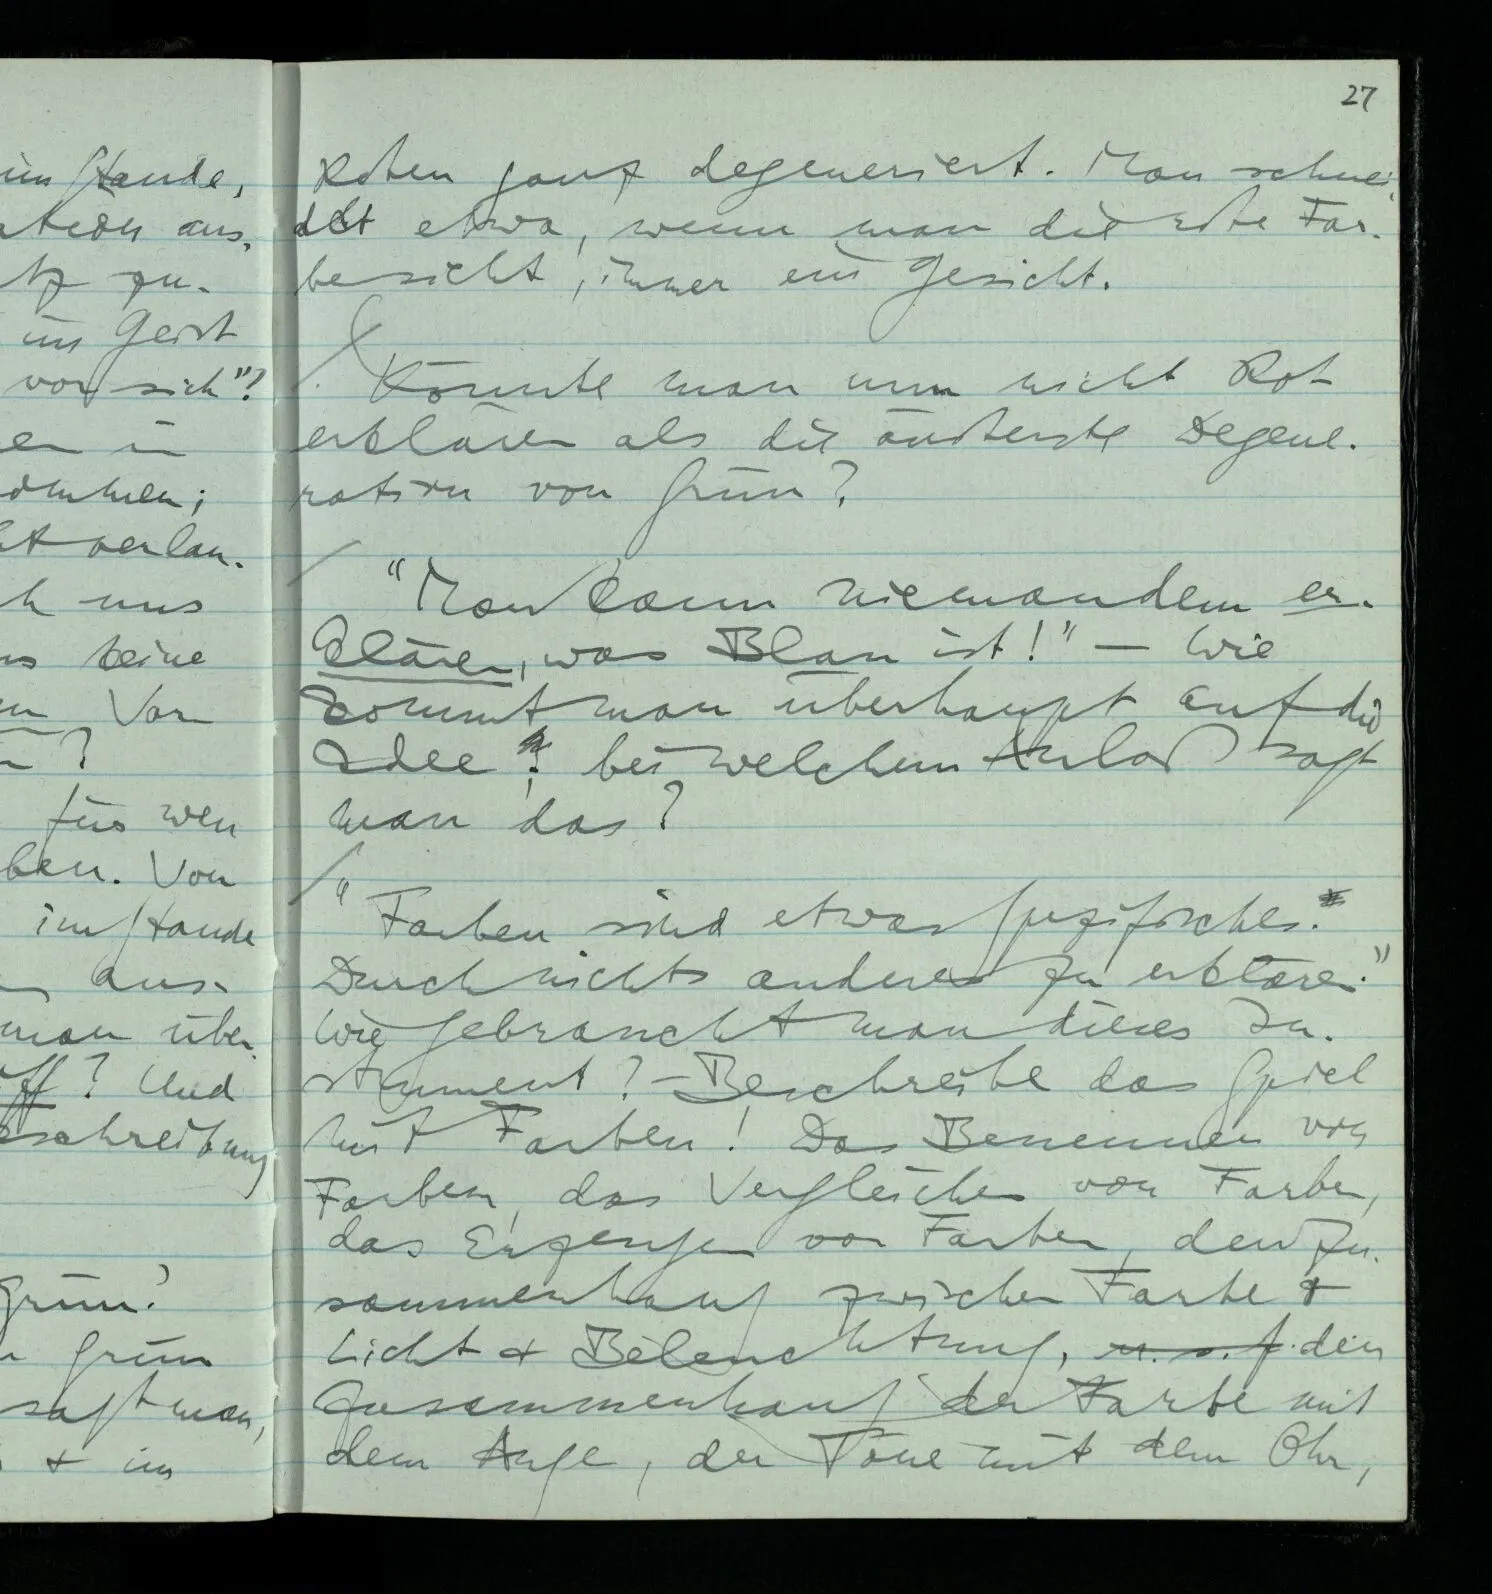 im Stande,
ation aus,
tz zu-
im Geist
vor sich"?
en in
kommen;
ht verlan-
h uns
ns keine
Vor
?
für wen
ben. Von
im Stande
aus-
man über
iff? Und
eschreibung
Grün?
n grün
sagt man,
+ im
27
Roten ganz degeneriert. Man schnei-
det etwa, wenn man die rote Far-
be sieht, immer ein Gesicht.
/ Könnte man nun nicht Rot
erklären als die äußerste Degene-
ration von Grün?
/ "Man kann niemandem er-
klären, was Blau ist!" — Wie
kommt man überhaupt auf die
Idee? bei welchem Anlaß sagt
man das?
/ "Farben sind etwas Spezifisches.
Durch nichts anderes zu erklären."
Wie gebraucht man dieses In-
strument? – Beschreibe das Spiel
mit Farben! Das Benennen von
Farben, das Vergleichen von Farben,
das Erzeugen von Farben, den Zu-
sammenhang zwischen Farbe +
Licht + Beleuchtung, u. s. f. den
Zusammenhang der Farbe mit
dem Auge, der Töne mit dem Ohr,